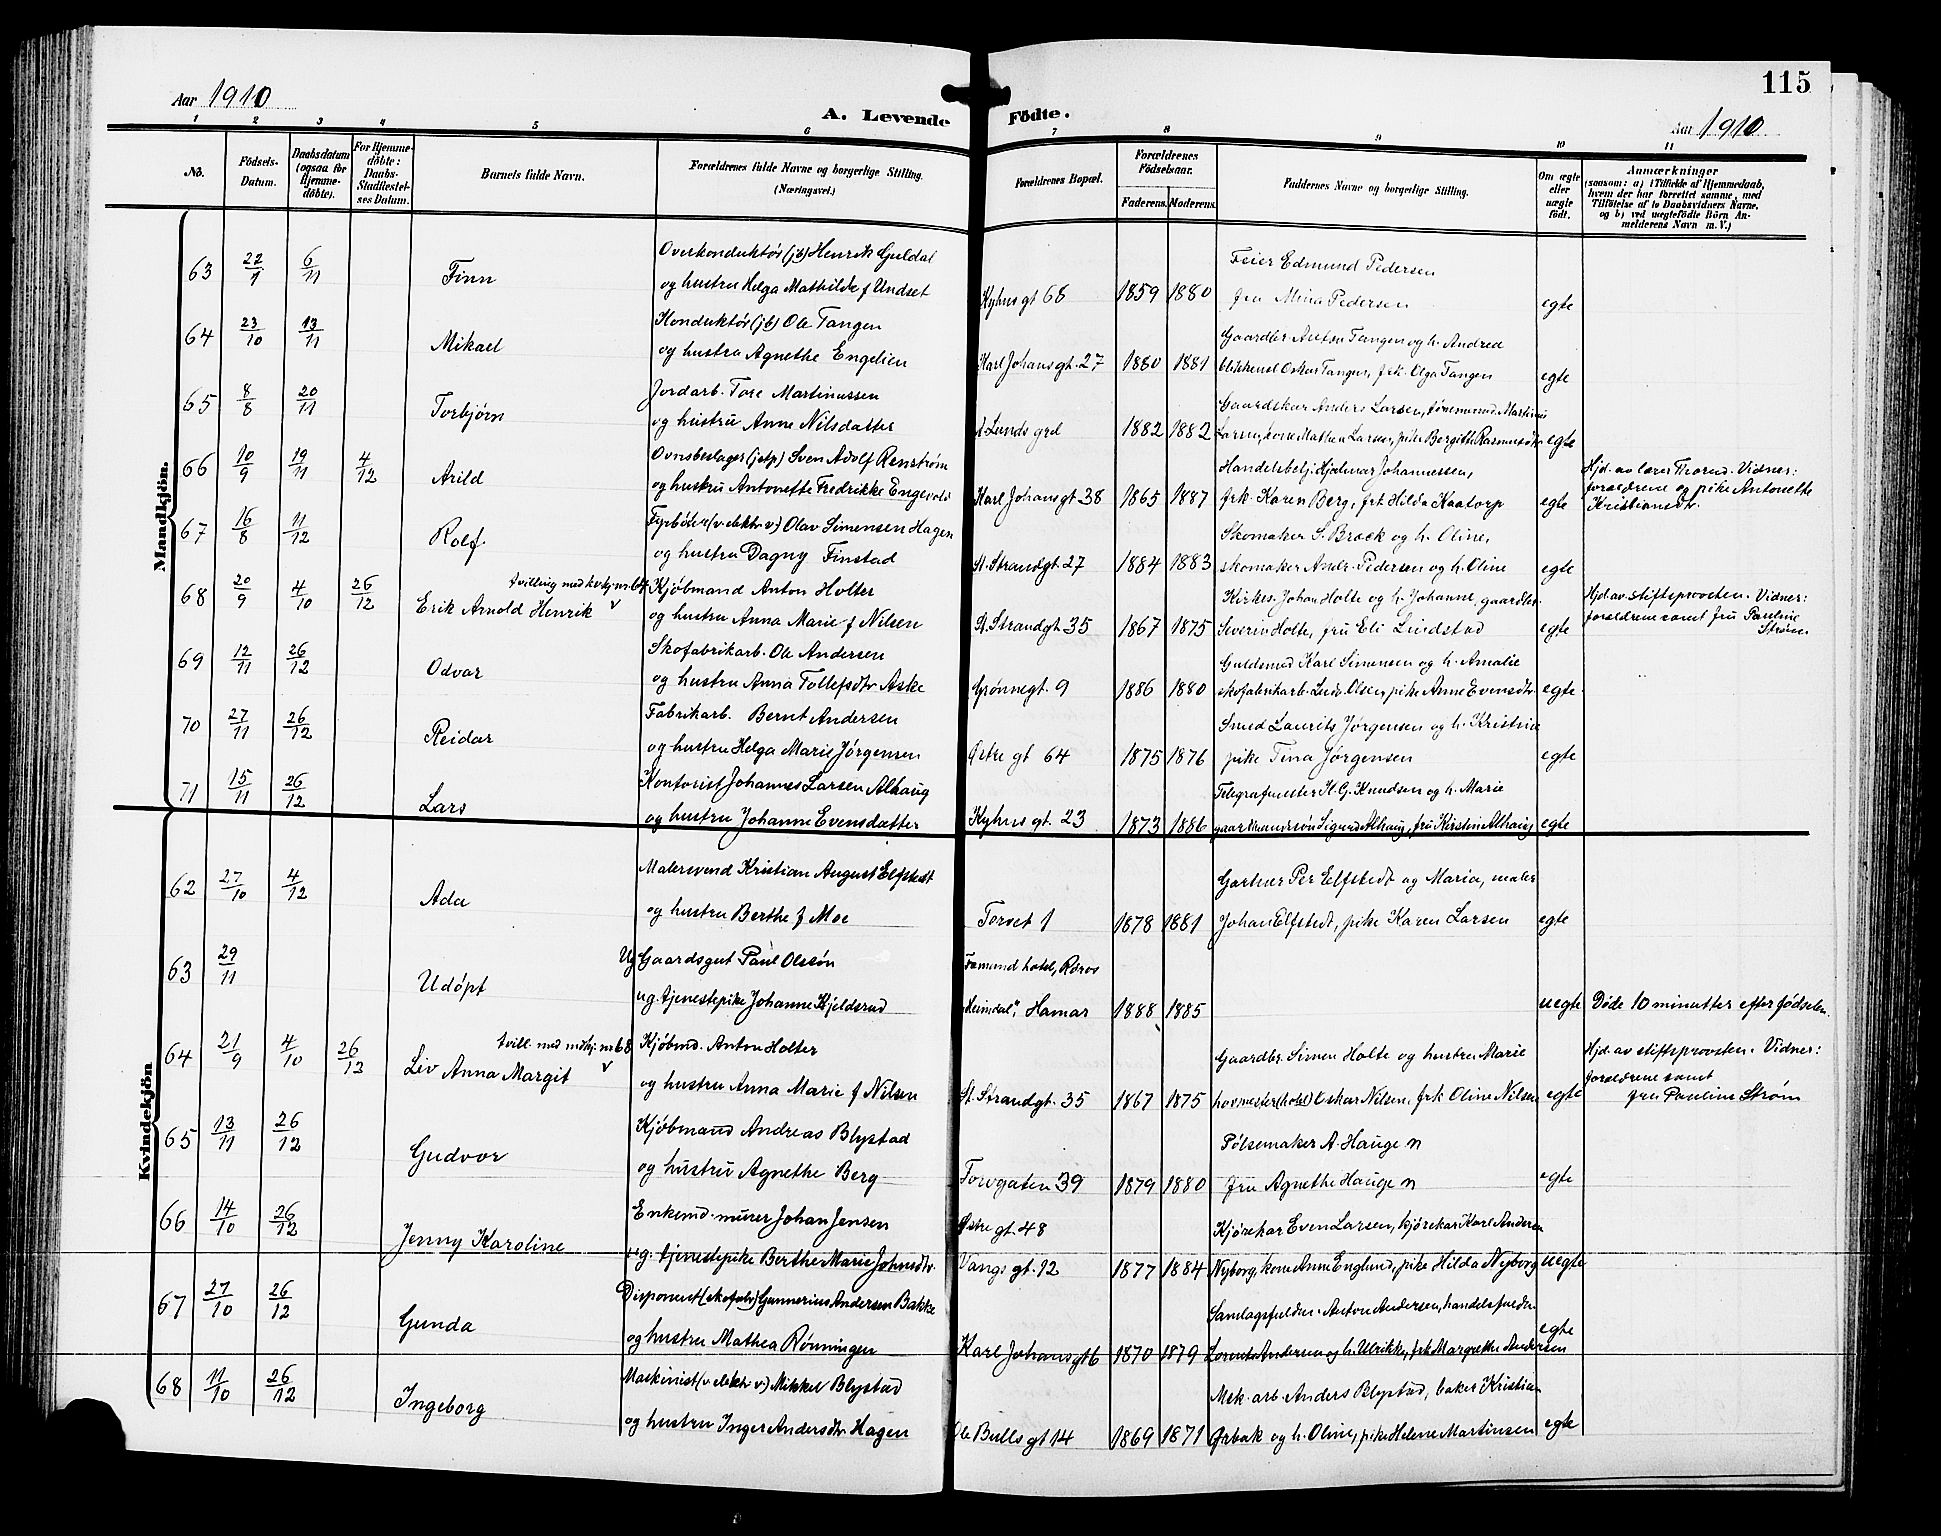 115
Aar 1910
A. Levende Födte.
Aar 1910
1 2 3 4 5 6 7 8 9 10 11
No.
Födsels-Datum.
Daabsdatum (ogsaa for Hjemmedöbte).
For Hjemmedöbte: Daabs-Stadfæstelses Datum.
Barnets fulde Navn.
Forældrenes fulde Navne og borgerlige Stilling. (Næringsvei.)
Forældrenes Bopæl.
Forældrenes Födselsaar.
Faderens. Moderens.
Faddernes Navne og borgerlige Stilling.
Om ægte eller uægte födt.
Anmærkninger
(saasom: a) i Tilfælde af Hjemmedaab, hvem der har forrettet samme, med Tilföielse af to Daabsvidners Navne. og b) ved uægtefödte Börn Anmelderens Navn m. V.)
Mandkjön.
63 22/9 6/11 Finn
Overkonduktör (jb) Henrik Guldal
og hustru Helga Mathilde f Undset
Kyhns gt 68 1859 1880
Feier Edmund Pedersen
fru Mina Pedersen egte
64 23/10 13/11 Mikael
Konduktör (jb) Ole Tangen
og hustru Agnethe Engelien
Karl Johans gt. 27 1880 1881
Gaardbr Anton Tangen og h. Andrea
blikkensl Oskar Tangen, frk. Olga Tangen egte
65 8/8 20/11 Torbjørn
Jordarb. Tore Martinussen
og hustru Anne Nilsdatter
Lunds grd 1882 1882
Gaardskar Anders Larsen, tömmermd Martinus
Larsen, kone Mathea Larsen, pike Bergithe Rasmusdtr egte
66 10/9 19/11 4/12 Arild
Ovnsbeslager (jstp) Sven Adolf Renstrøm
og hustru Antonette Fredrikke Engevold
Karl Johans gt 38 1865 1887
Handelsbetj Hjalmar Johannessen,
frk. Karen Berg, frk Hilda Kaatorp egte
Hjd. av lærer Thorud. Vidner:
forældrene og pike Antonette
Kristiansdtr.
67 16/8 11/12 Rolf.
Fyrböter (v elektr v.) Olav Simensen Hagen
og hustru Dagny Finstad
St. Strandgt 27 1884 1883
Skomaker S. Brock og h. Oline,
skomaker Andr. Pedersen og h. Oline egte
68 20/9 4/10 26/12 tvilling med kvkj nr 64
Erik Arnold Henrik v
Kjöbmand Anton Holter
og hustru Anna Marie f Nilsen
St. Strandgt 35 1867 1875
Kirkes. Johan Holte og h. Johanne, gaardbr.
Severin Holte, fru Eli Lindstad egte
Hjd. av stiftsprovsten. Vidner:
forældrene samt fru Pauline
Strøm
69 12/11 26/12 Odvar
Skofabrikarb. Ole Andersen
og hustru Anna Tollefsdtr Aske
Grönnegt. 9 1886 1880
Guldsmed Karl Simensen og h. Amalie
skofabrikarb. Ludv. Olsen, pike Anne Evensdtr. egte.
70 27/11 26/12 Reidar
Fabrikarb. Bernt Andersen
og hustru Helga Marie Jörgensen
Østre gt 64 1875 1876
Smed Laurits Jørgensen og h. Kristine
pike Tina Jørgensen egte
71 15/11 26/12 Lars
Kontorist Johannes Larsen Alhaug
og hustru Johanne Evensdatter
Kyhns gt. 23 1873 1886
Telegrafmester K. G. Knudsen og h. Marie
gaardmandssøn Sigurd Alhaug, fru Kirstine Alhaug egte
Kvindekjön
62 27/10 4/12 Ada
Malersvend Kristian August Elfstedt
og hustru Berthe f Moe
Torvet 1 1878 1881
Gartner Per Elfstedt og Maria, maler
Johan Elfstedt, pike Karen Larsen egte
63 29/11 Udöpt
Ug Gaardsgut Paul Olssön
ug. tjenestepike Johanne Kjeldsrud
Fæmund hotel, Röros
"Heimdal", Hamar 1888 1885
uegte Döde 10 minutter efter födselen.
64 21/9 4/10 26/12 tvill. med mdkj. nr 68
Liv Anna Margit v
Kjöbmd. Anton Holter
og hustru Anna Marie f Nilsen
St. Strandgt. 35 1867 1875
Gaardbr. Simen Holte og hustru Marie
hovmester (hotel) Oskar Nilsen, frk Oline Nilsen egte
Hjd. av stiftsprovsten. Vidner:
forældrene samt
fru Pauline Strøm
65 13/11 26/12 Gudvor
Kjöbmand Andreas Blystad
og hustru Agnethe Berg
Torvgaten 39 1879 1880
Pölsemaker A. Haugen
fru Agnethe Haugen egte
66 14/10 26/12 Jenny Karoline
Enkemd. murer Johan Jensen
ug. tjenestepike Berthe Marie Johnsdtr.
Østre gt. 48
Vangs gt. 12 1877 1884
Kjörekar Even Larsen, kjörekar Karl Andersen
Nyborg, kone Anne Englund, pike Hilda Nyborg uegte
67 27/10 26/12 Gunda
Disponent (skofabr) Gunnerius Andersen Bakke
og hustru Mathea Rönningen
Karl Johans gt 6 1870 1879
Samlagsfuldm. Anton Andersen, handelsfuldm
Lorents Andersen og h. Ulrikke, frk Margrethe Andersen egte
68 11/10 26/12 Ingeborg
Maskinist (v elektr v) Mikkel Blystad
og hustru Inger Andersdtr Hagen
Ole Bulls gt 14 1869 1871
Mek. arb. Anders Blystad, baker Kristian
Ørbæk og h. Oline, pike Helene Martinsen egte